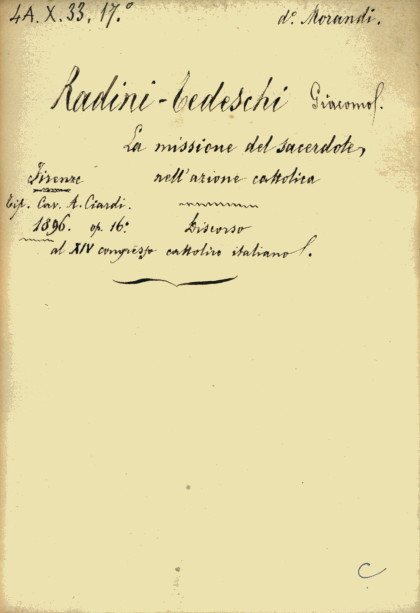 4A. X. 33. 17.° d.° Morandi.
Radini-Tedeschi Giacomo.
La missione del sacerdote,
Firenze nell'azione cattolica
Tip. Cav. A. Ciardi.
1896. op. 16.° Discorso
al XIV congresso cattolico italiano.
C